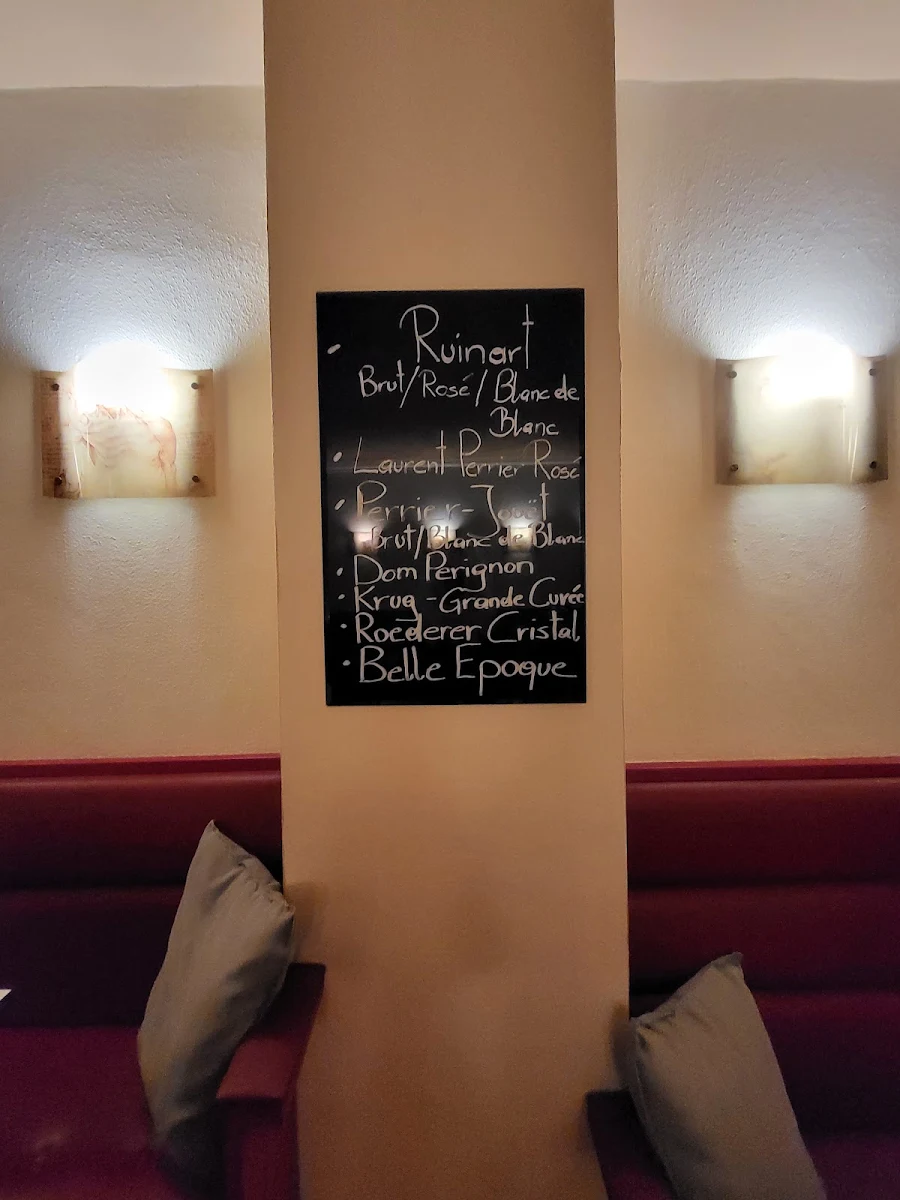 • Ruinart
Brut/Rosé/Blanc de
Blanc
• Laurent Perrier Rosé
• Perrier-Jouët
Brut/Blanc de Blanc
• Dom Perignon
• Krug - Grande Cuvée
• Roederer Cristal
• Belle Epoque